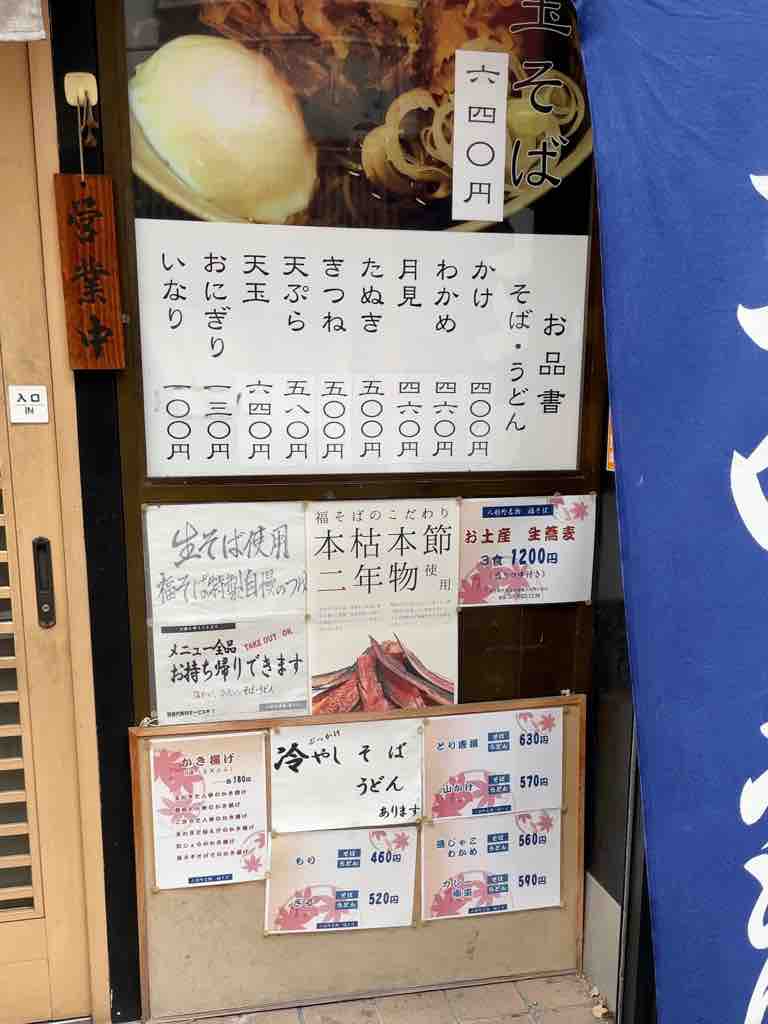 玉そば
六四〇円
営業中
入口
IN
お品書
そば・うどん
かけ 四〇〇円
わかめ 四六〇円
月見 四六〇円
たぬき 五〇〇円
きつね 五〇〇円
天ぷら 五八〇円
天玉 六四〇円
おにぎり 一三〇円
いなり 一〇〇円
生そば使用
福そば特製自慢のつゆ
メニュー全品 TAKE OUT OK
お持ち帰りできます
福そばのこだわり
本枯本節
二年物使用
お土産 生蕎麦
3食 1200円
かき揚げ
ぶっかけ
冷やしそば
うどん
あります
とり唐揚 そば うどん 630円
山かけ そば うどん 570円
もり そば うどん 460円
ざる そば うどん 520円
わかめ そば うどん 560円
カレー そば うどん 590円